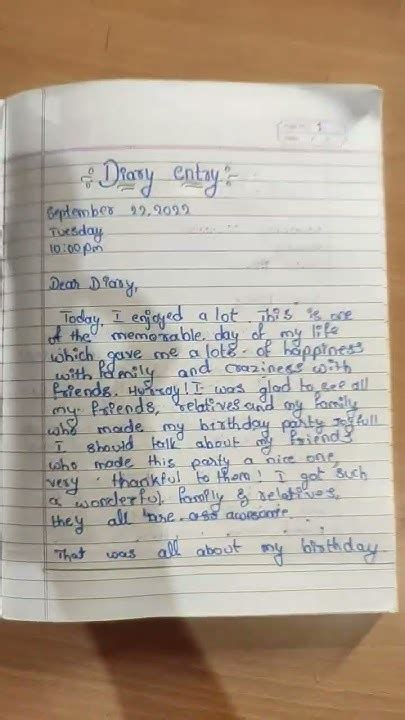 Diary entry:-
September 22, 2022
Tuesday
10:00 pm
Dear Diary,
Today, I enjoyed a lot. This is one
of the memorable day of my life
which gave me a lots of happiness
with family and craziness with
friends. Hurray! I was glad to see all
my friends, relatives and my family
who made my birthday party joyfull
I should talk about my friends
who made this party a nice one,
very thankful to them! I got such
a wonderful family & relatives,
they all are awesome.
That was all about my birthday